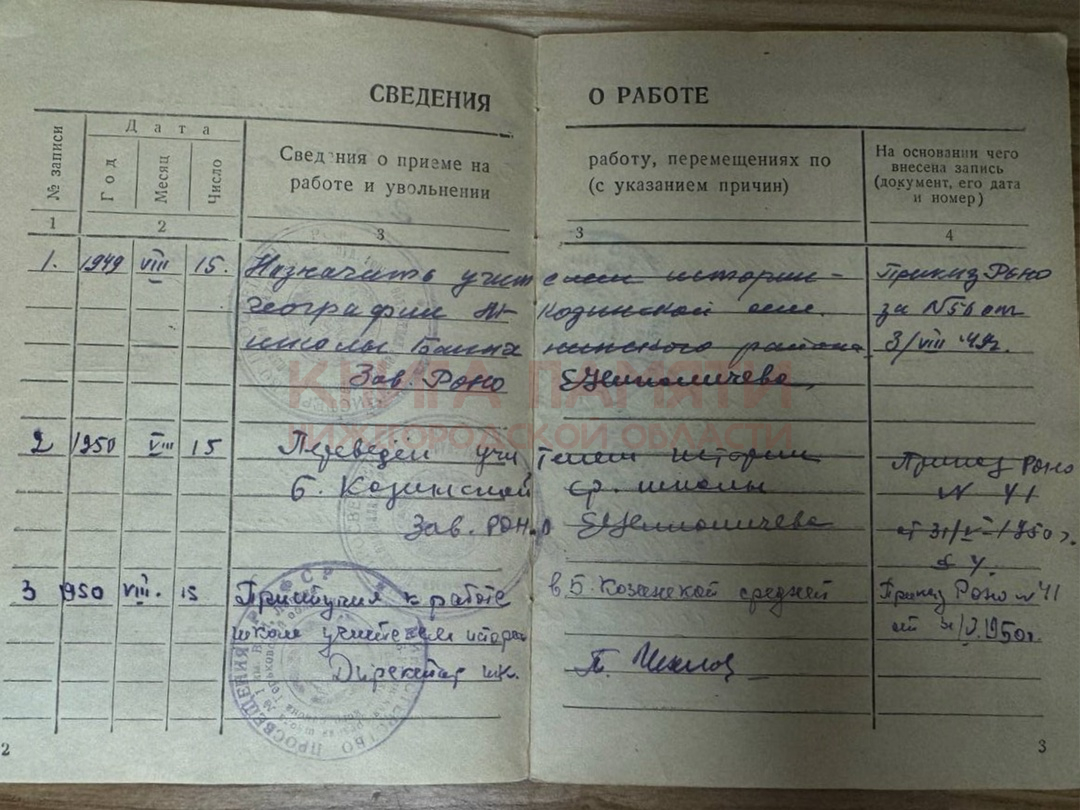 СВЕДЕНИЯ О РАБОТЕ
№ записи
Дата
Год
Месяц
Число
Сведения о приеме на работу, перемещениях по
работе и увольнении (с указанием причин)
На основании чего
внесена запись
(документ, его дата
и номер)
1 2 3 3 4
1. 1949 VIII 15. Назначить учителем истории - Приказ Роно
географии за №56 от
школы района 3/VIII 49г.
Зав. Роно
КНИГА ПАМЯТИ
НИЖЕГОРОДСКОЙ ОБЛАСТИ
2 1950 VIII 15 Переведён учителем истории Приказ Роно
Б. Козинской ср. школы N 41
Зав. РОНО от 31/ 1950 г.
3 1950 VIII. 15 Приступил к работе в Б. Козинской средней Приказ Роно N 41
школ учителем истории от 1950г.
Директор шк.
2
3